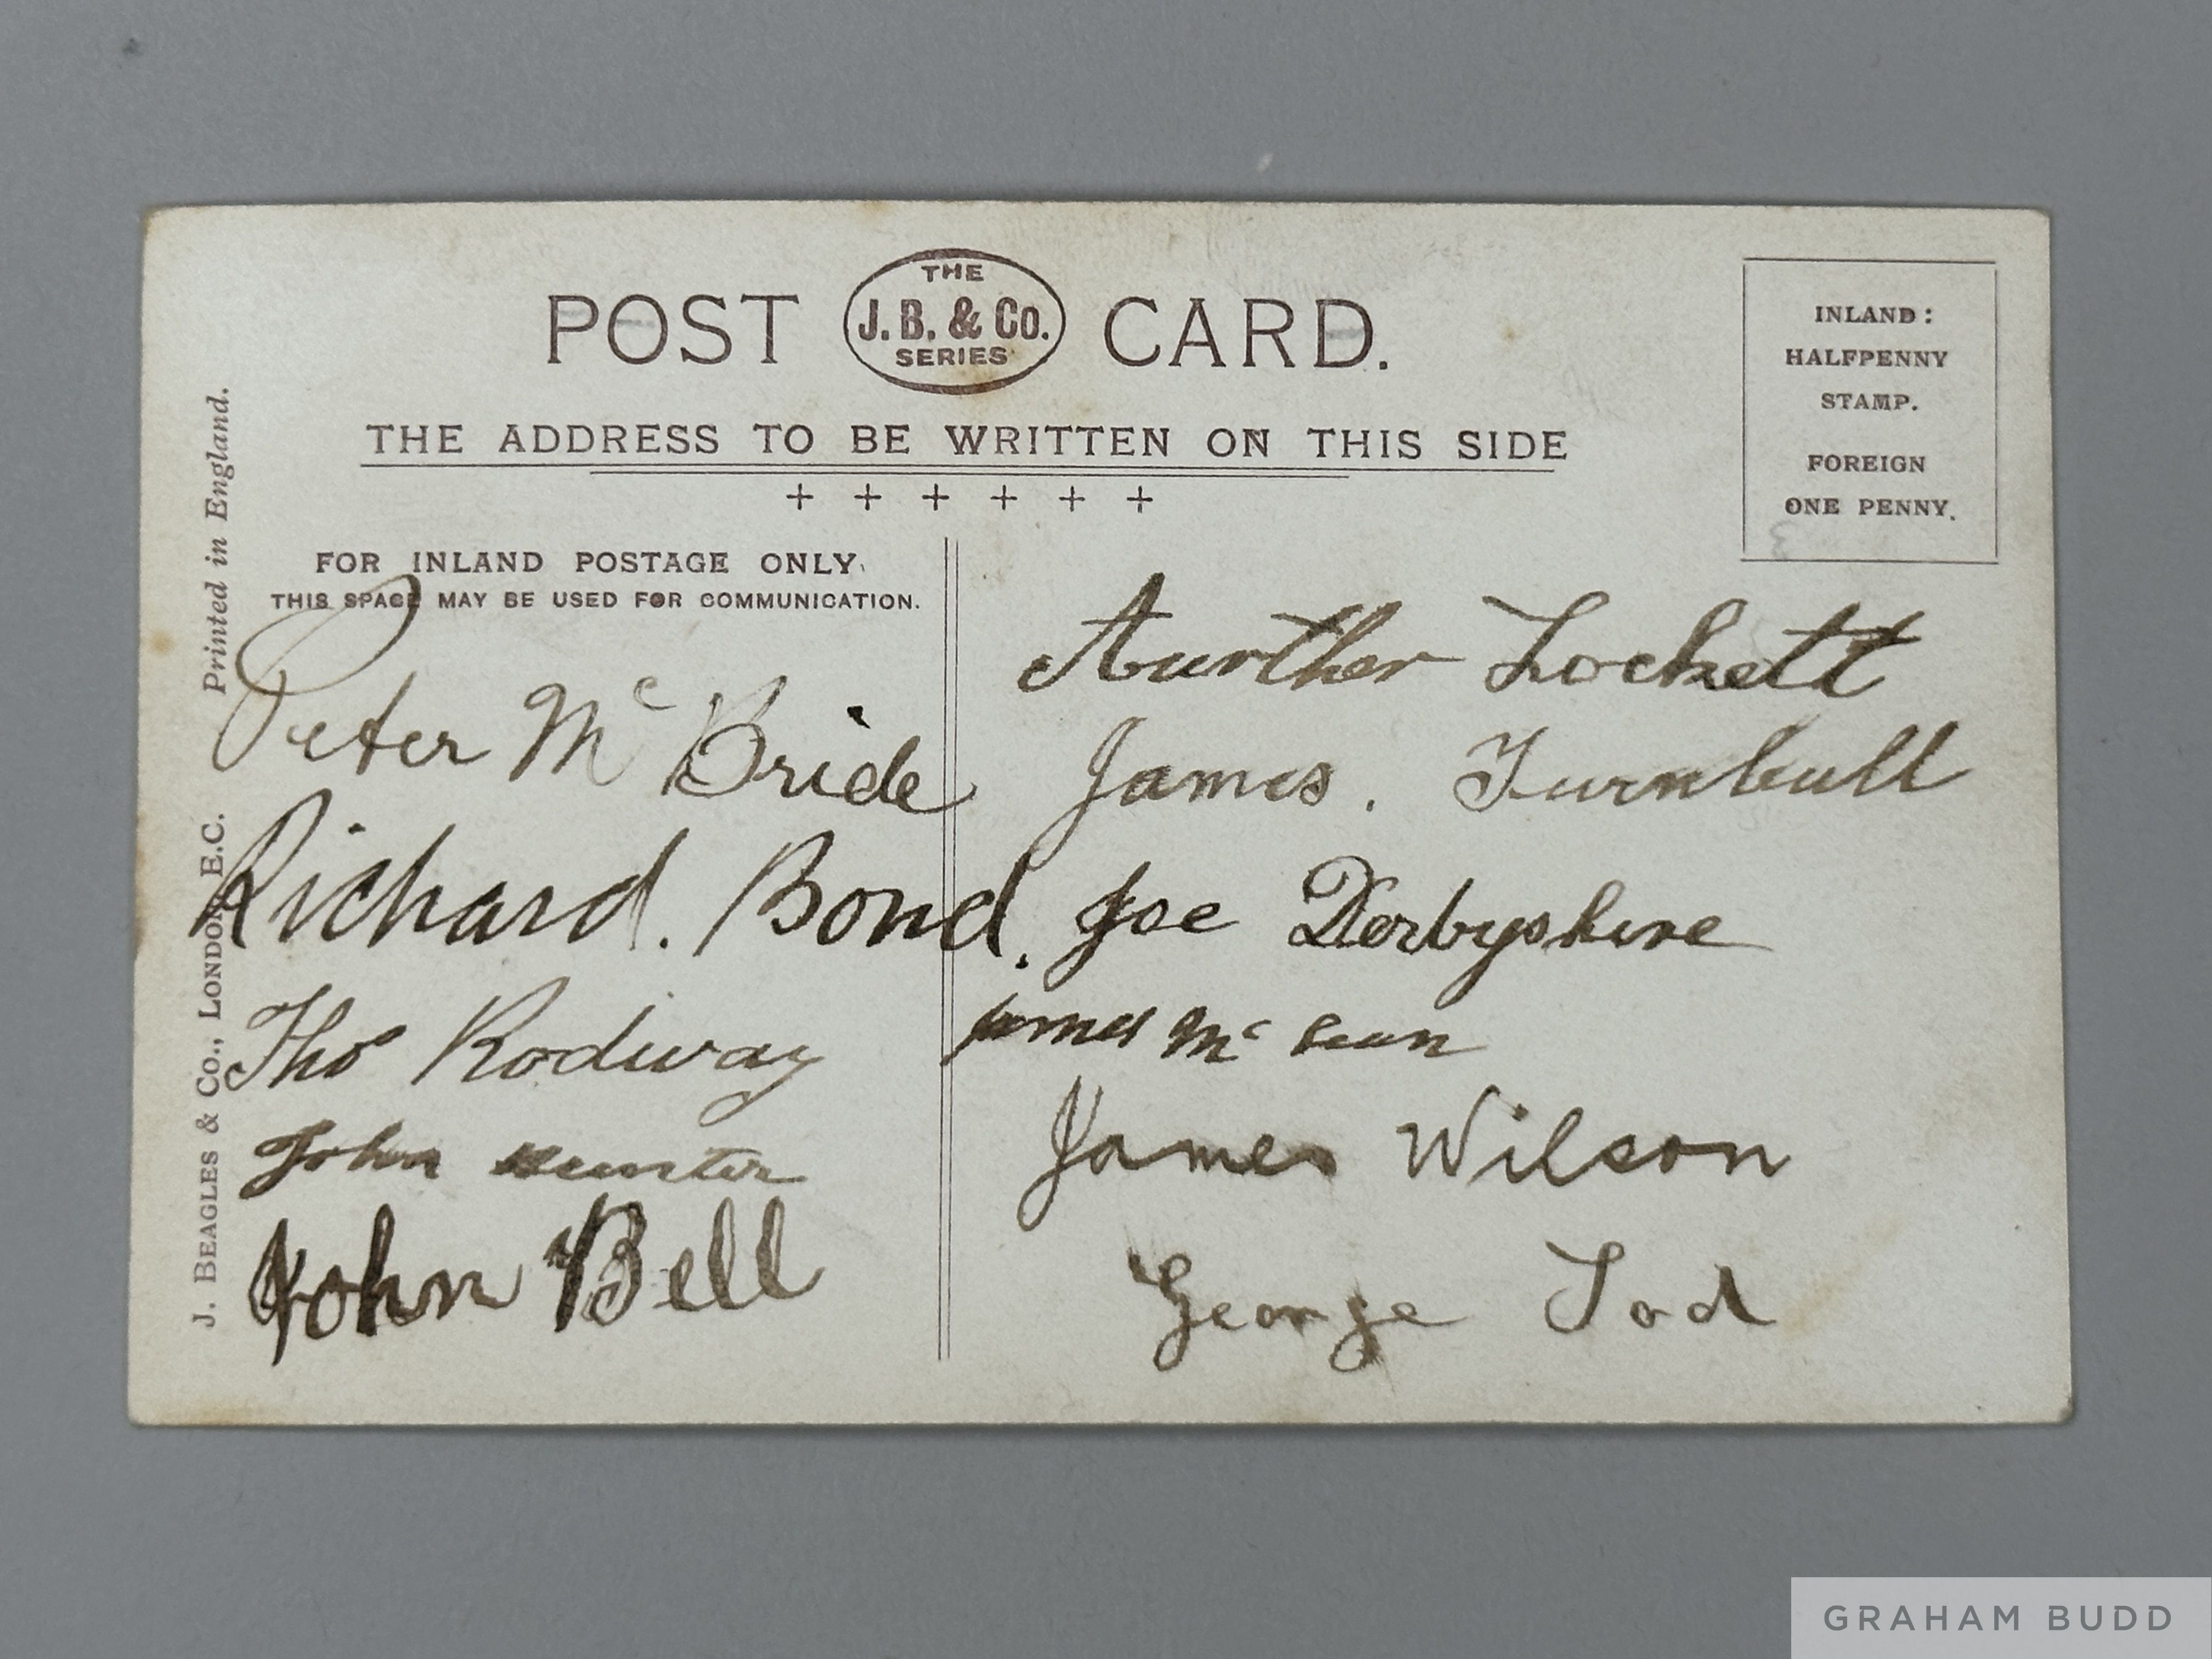 POST THE J.B. & Co. SERIES CARD.
THE ADDRESS TO BE WRITTEN ON THIS SIDE
+ + + + + +
INLAND:
HALFPENNY
STAMP.
FOREIGN
ONE PENNY.
Printed in England.
J. BEAGLES & Co., LONDON, E.C.
FOR INLAND POSTAGE ONLY.
THIS SPACE MAY BE USED FOR COMMUNICATION.
Peter McBride
Richard. Bond.
Tho Rodway
John Hunter
John Bell
Aurther Lockett
James. Turnbull
Joe Derbyshire
James Mc
James Wilson
George Tod
GRAHAM BUDD